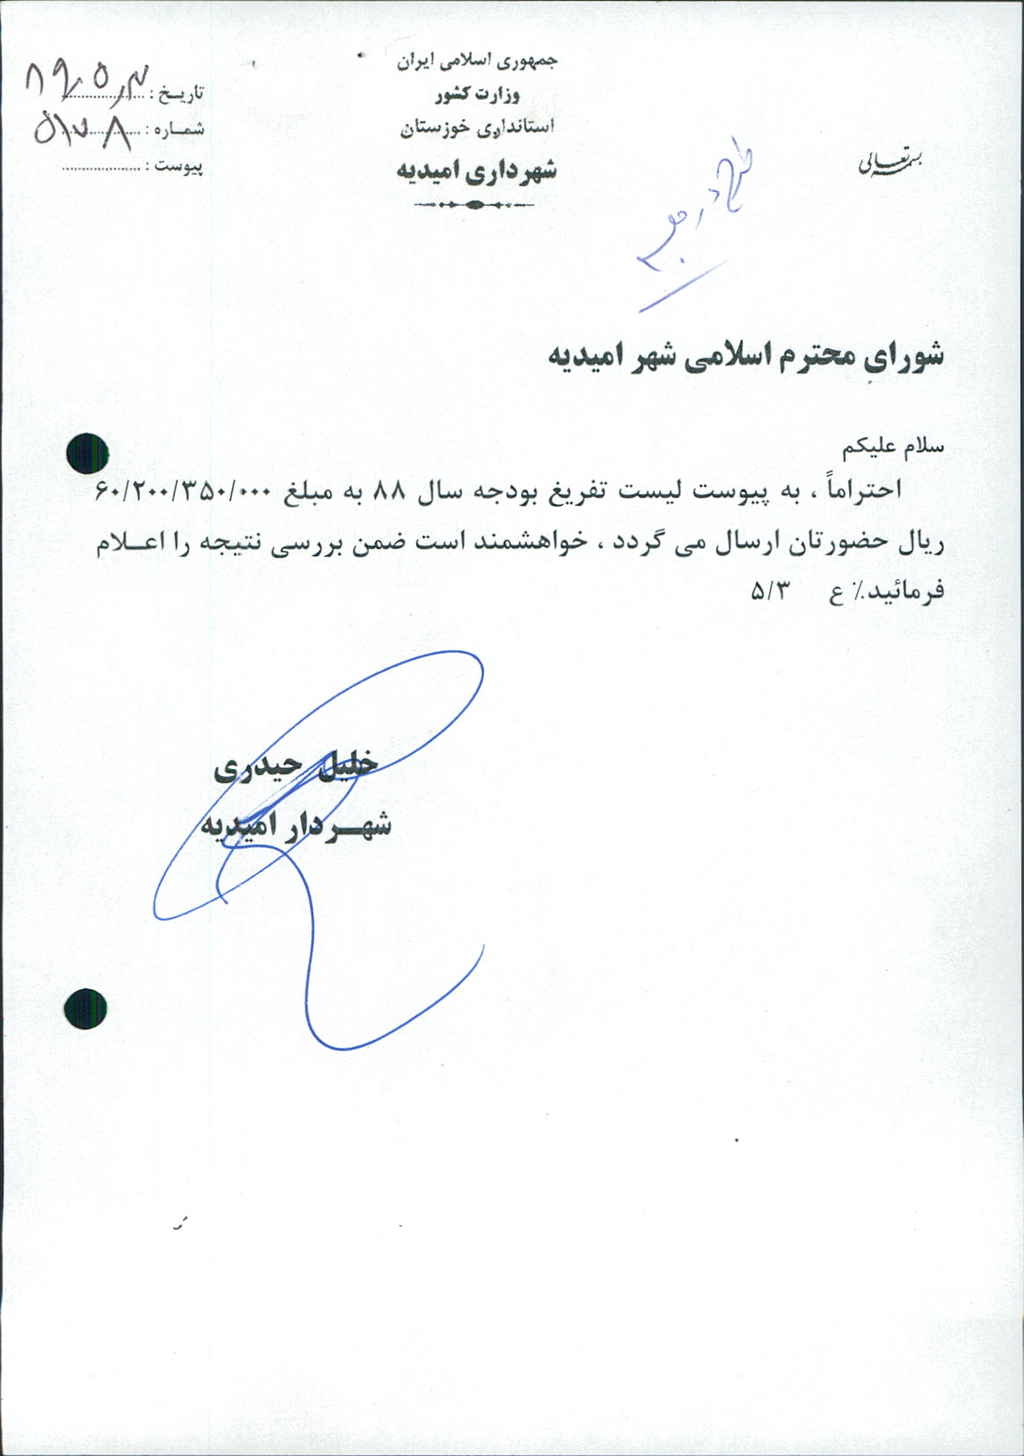 بسمه تعالی
جمهوری اسلامی ایران
وزارت کشور
استانداری خوزستان
شهرداری امیدیه
تاریخ :
شماره : ۵۱۷۸
پیوست :
طرح در
شورای محترم اسلامی شهر امیدیه
سلام علیکم
احتراماً ، به پیوست لیست تفریغ بودجه سال ۸۸ به مبلغ ۶۰/۲۰۰/۳۵۰/۰۰۰
ریال حضورتان ارسال می گردد ، خواهشمند است ضمن بررسی نتیجه را اعـلام
فرمائید.٪ ع ۵/۳
خلیل حیدری
شهـردار امیدیه